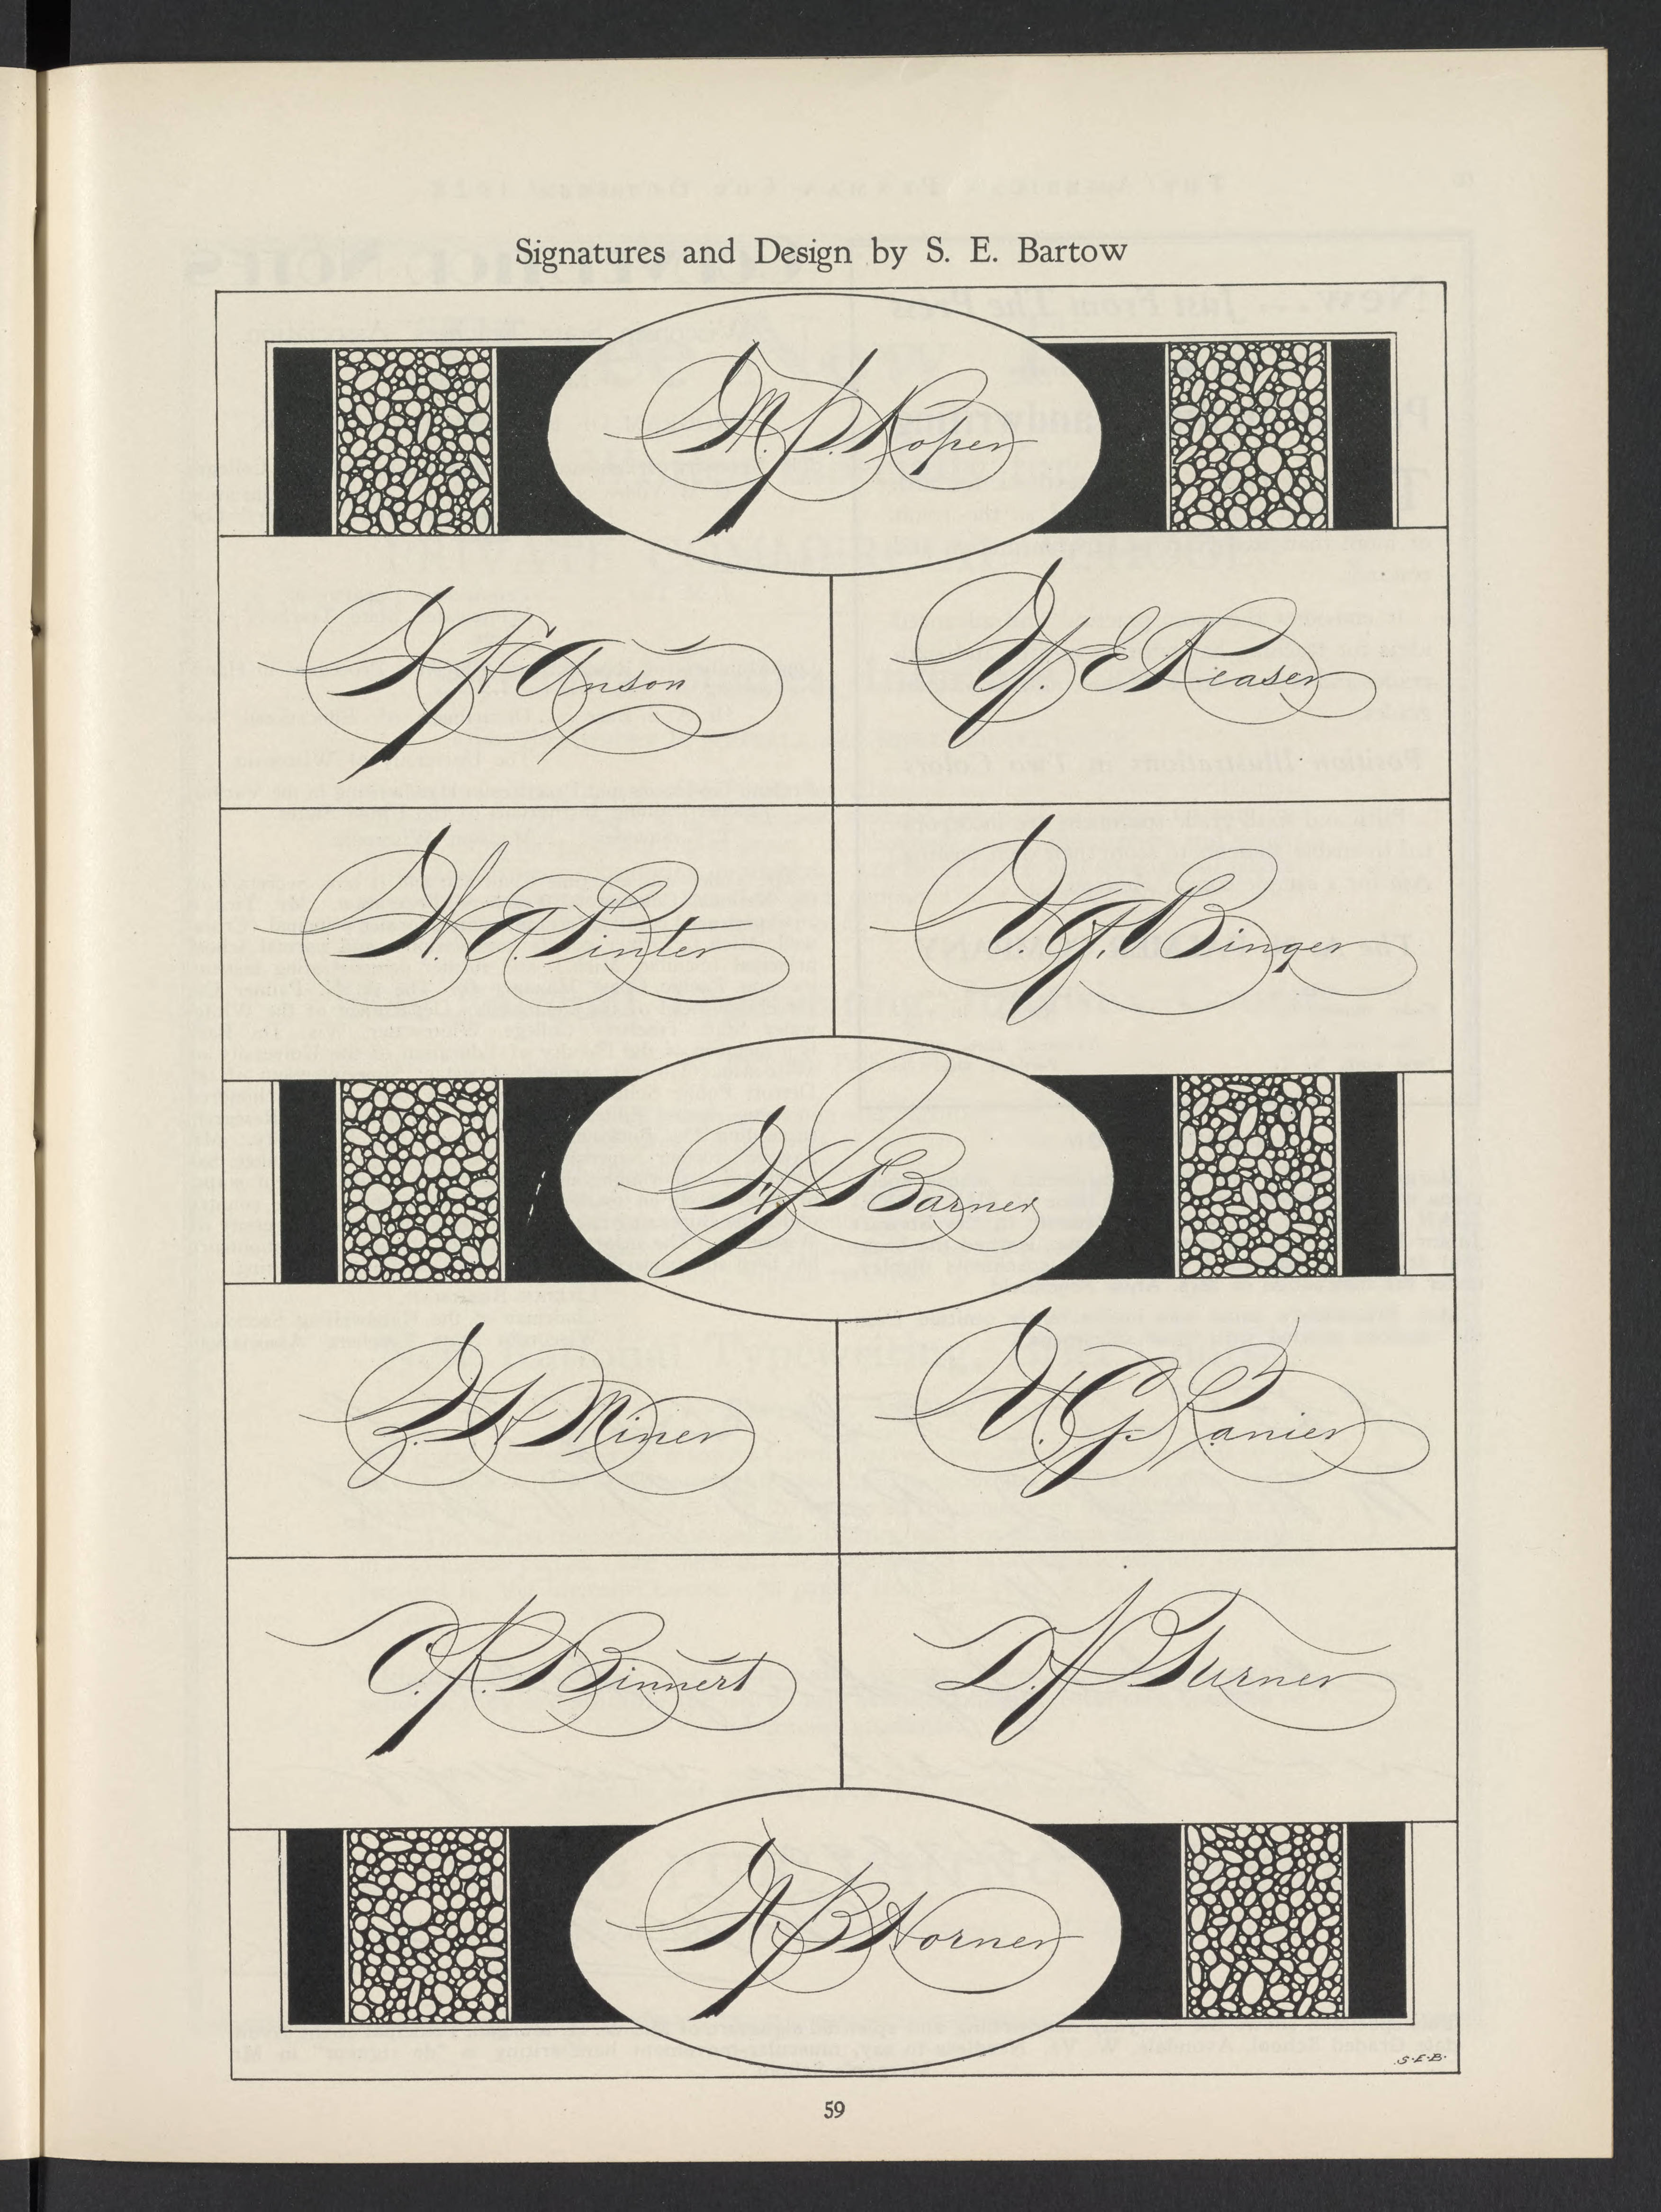 Signatures and Design by S. E. Bartow
M. P. Roper
Anson
Y. E. Reaser
W. A. Pinter
V. Y. Binger
Barner
Z. Miner
V. G. Ranier
O. P. Binnert
D. Turner
Horner
S.E.B.
59